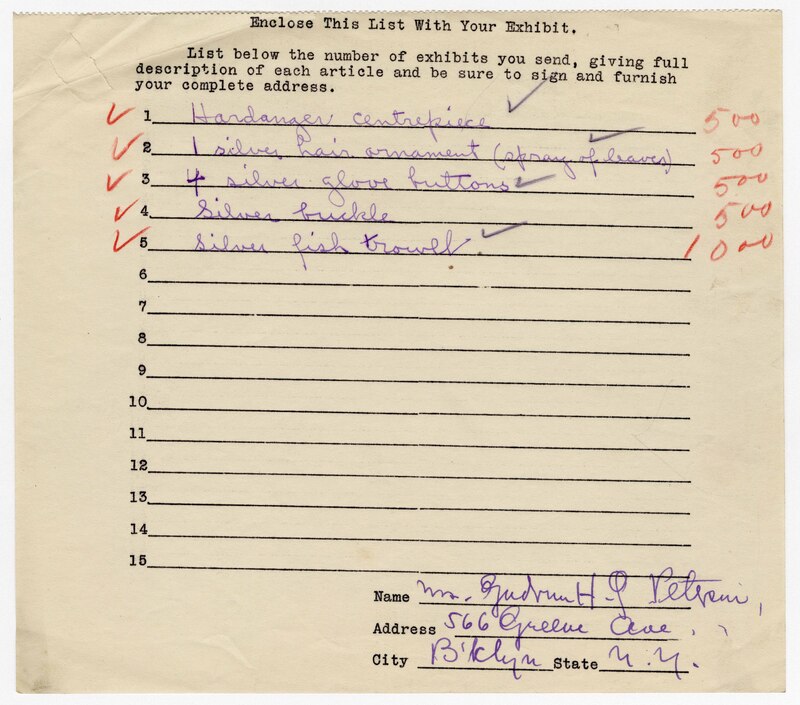 Enclose This List With Your Exhibit.
List below the number of exhibits you send, giving full
description of each article and be sure to sign and furnish
your complete address.
✓ 1 Hardanger centrepiece ✓ 500
✓ 2 1 silver hair ornament (spray of leaves) ✓ 500
✓ 3 4 silver glove buttons ✓ 500
✓ 4 Silver buckle 500
✓ 5 Silver fish trowel ✓ 1000
6
7
8
9
10
11
12
13
14
15
Name Mrs. Gudrun H. G Petersen,
Address 566 Greene Ave.
City B'klyn State N.Y.